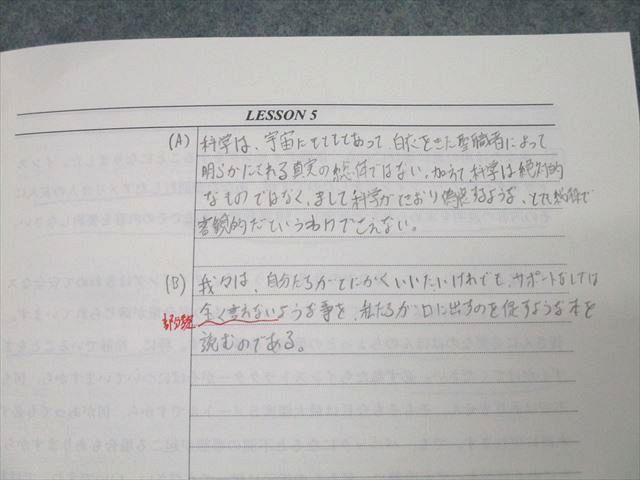 LESSON 5
(A) 科学は、宇宙にもともとあって、白衣をきた聖職者によって
明らかにされる真実の総体ではない。加えて科学は絶対的
なものではなく、まして科学が
客観的だというわけでさえない。
(B) 我々は、自分たちがとにかくいいたいけれでも、サポートなしでは
全く言えないような事を、私たちが口に出すのを促すような本を
読むのである。